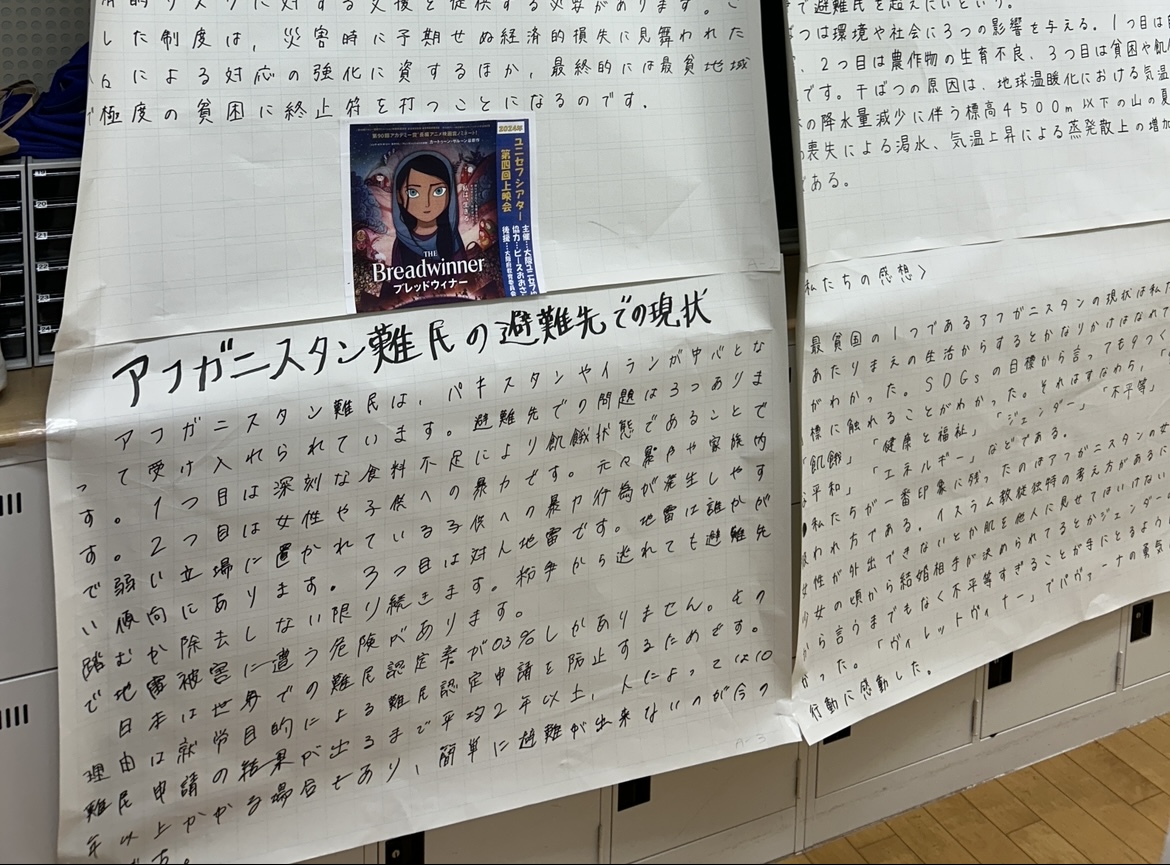 済的リスクに対する支援を提供する必要があります。こ
した制度は,災害時に予期せぬ経済的損失に見舞われた
による対応の強化に資するほか,最終的には最貧地域
で極度の貧困に終止符を打つことになるのです.
第90回アカデミー賞®長編アニメ映画賞ノミネート!
私は、生きる。
THE
Breadwinner
ブレッドウィナー
2024年
ユニセフシアター
第四回上映会
主催…大阪ユニセフ
協力…ピースおおさ
後援…大阪府教育委員会
アフガニスタン難民の避難先での現状
アフガニスタン難民は,パキスタンやイランが中心とな
って受け入れられています。避難先での問題は3つありま
す。1つ目は深刻な食料不足により飢餓状態であることで
す。2つ目は女性や子供への暴力です。元々暴力や家族内
で弱い立場に置かれている子供への暴力行為が発生しやす
い傾向にあります。3つ目は対人地雷です。地雷は誰かが
踏むか除去しない限り続きます。紛争から逃れても避難先
で地雷被害に遭う危険があります。
日本は世界での難民認定率が0.3%しかありません。その
理由は就労目的による難民認定申請を防止するためです。
難民申請の結果が出るまで平均2年以上,人によっては10
年以上かかる場合もあり,簡単に避難が出来ないのが今の
で避難民を超えたいという。
ばつは環境や社会に3つの影響を与える。1つ目は
、2つ目は農作物の生育不良、3つ目は貧困や飢
です。干ばつの原因は、地球温暖化における気温
の降水量減少に伴う標高4500m以下の山の夏
喪失による渇水、気温上昇による蒸発散上の増加
である。
私たちの感想>
最貧国の1つであるアフガニスタンの現状は私た
あたりまえの生活からするとかなりかけはなれて
がわかった。SDGsの目標から言っても
標に触れることがわかった。それはすなわち,「
「飢餓」「健康と福祉」「ジェンダー」「不平等」
な平和」「エネルギー」などである。
私たちが一番印象に残ったのはアフガニスタンの女
扱われ方である。イスラム教徒独特の考え方があるに
女性が外出できないとか肌を他人に見せてはいけない
少女の頃から結婚相手が決められてるとかジェンダー
から言うまでもなく不平等すぎることが手にとるよう
かった。「ヴィレットヴィナー」でパヴァーナの勇気
行動に感動した。
A-3